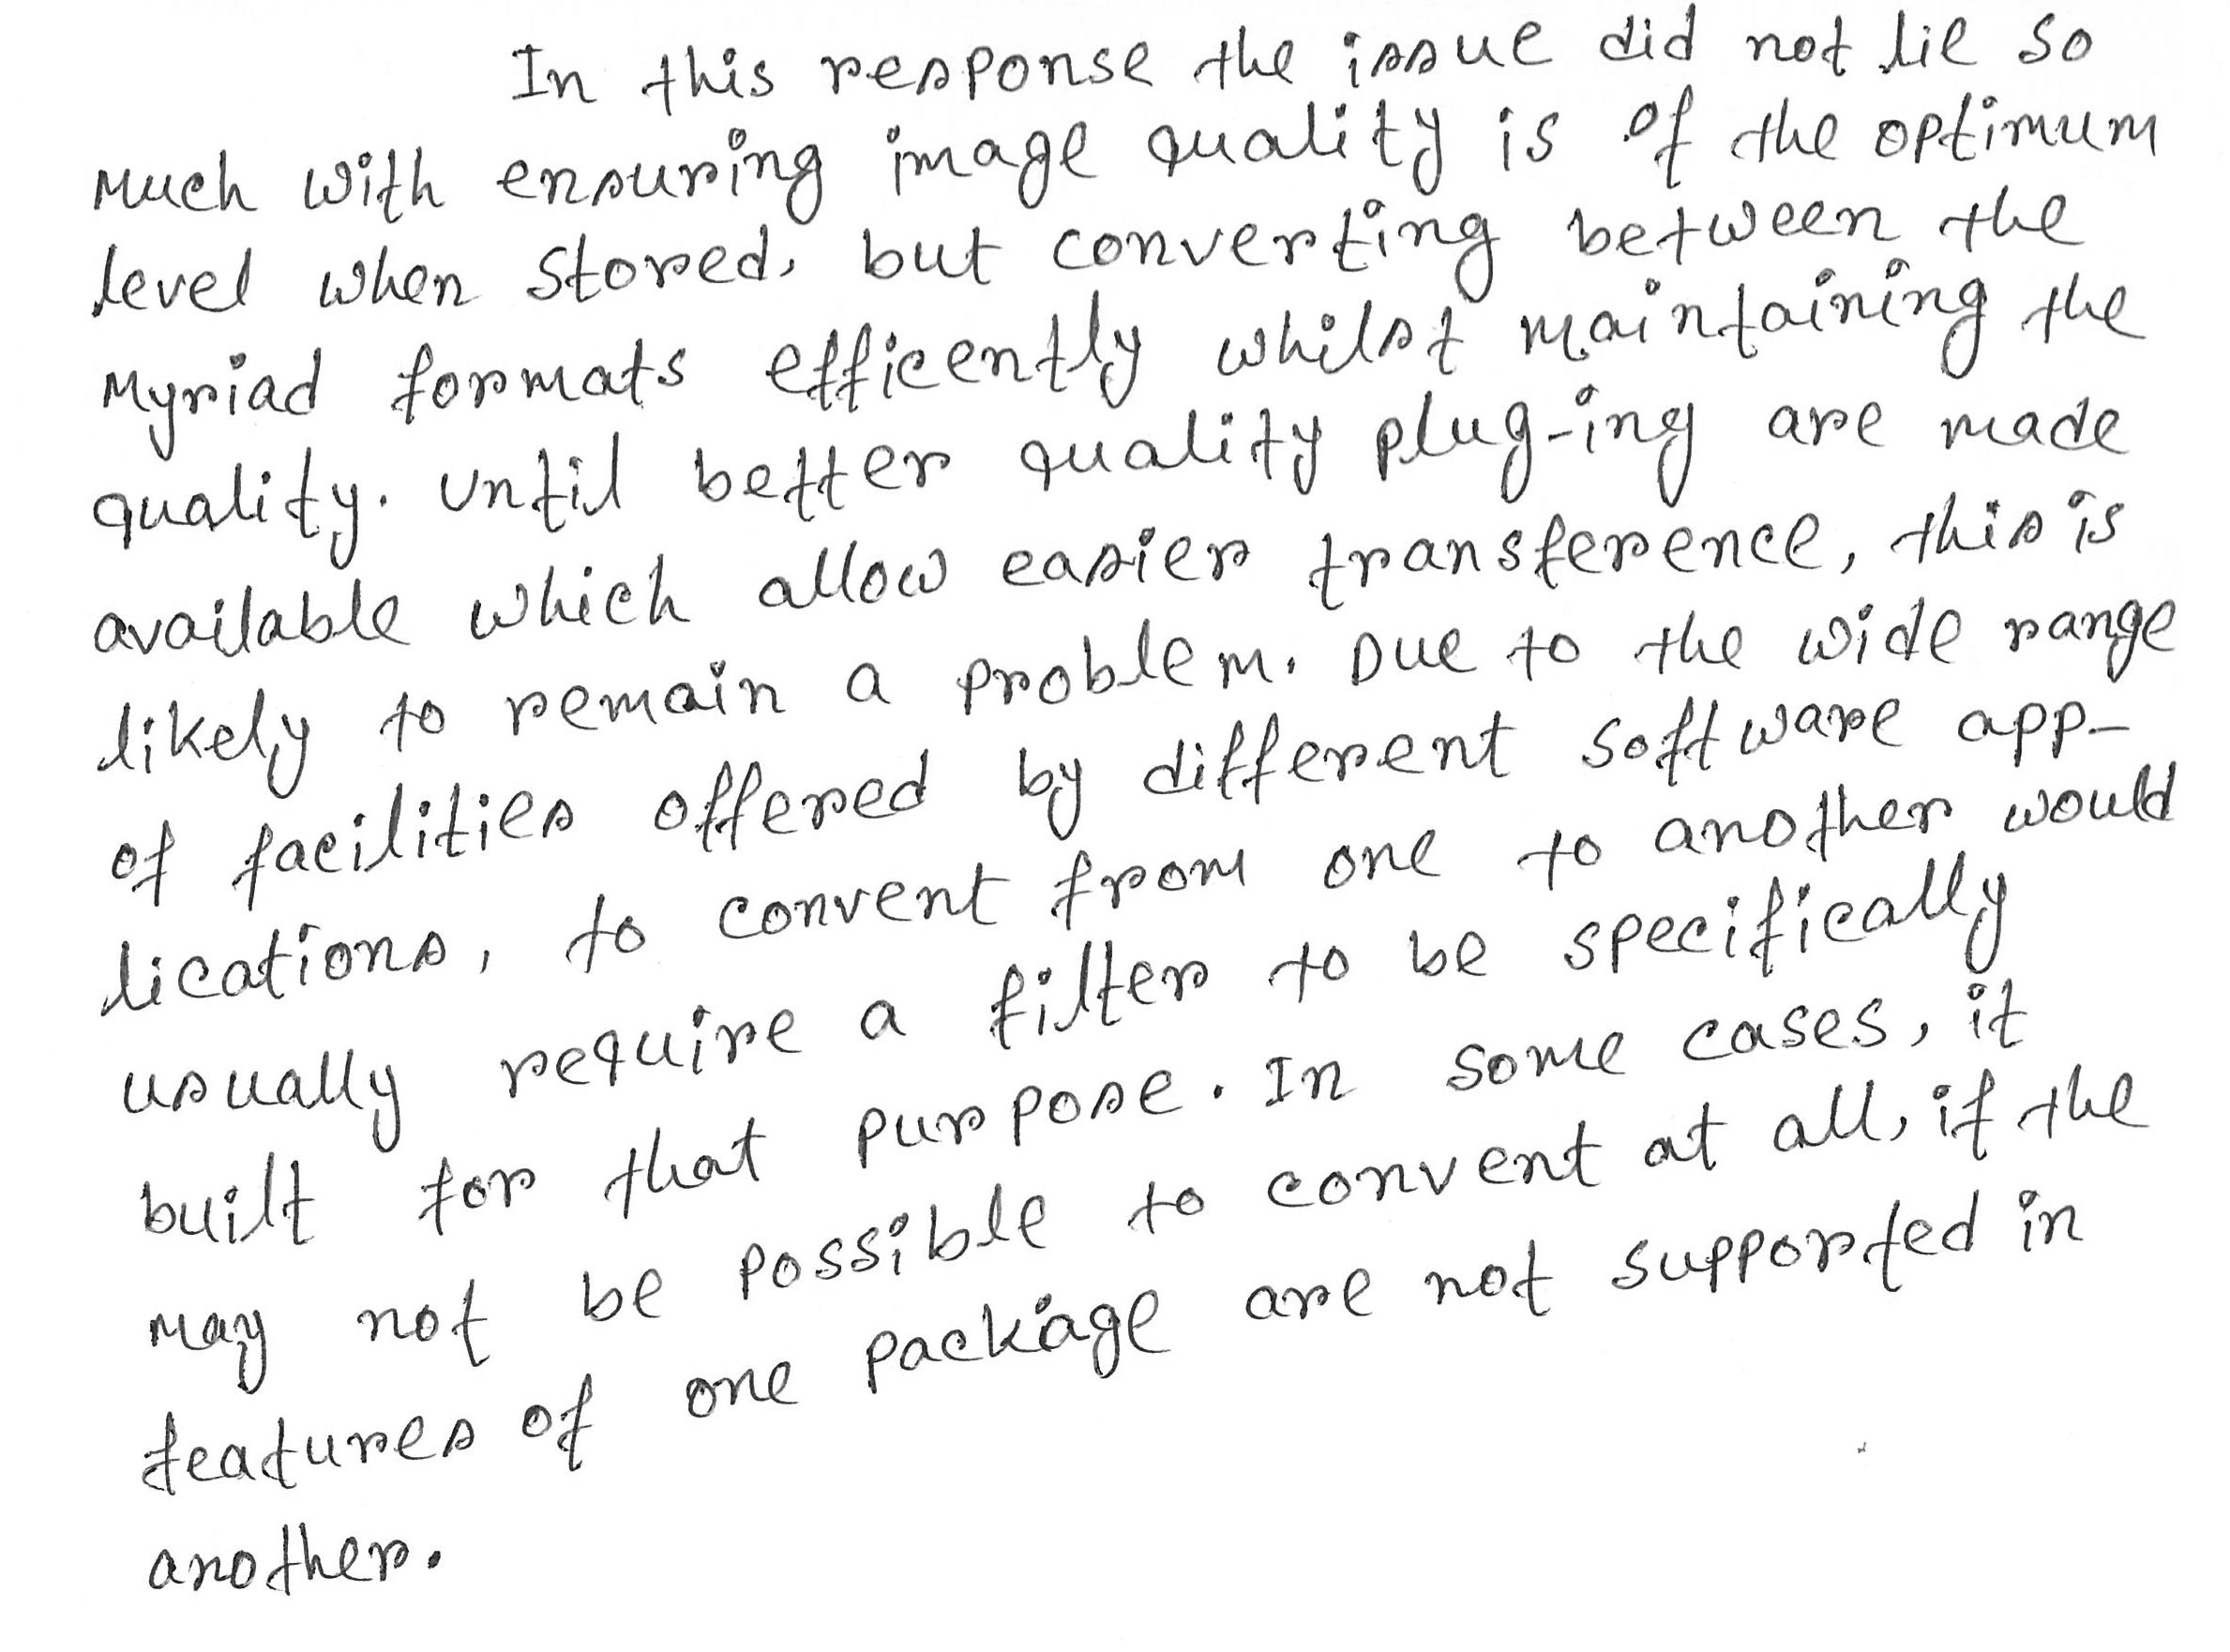 In this response the issue did not lie so
much with ensuring image quality is of the optimum
level when stored, but converting between the
myriad formats efficently whilst maintaining the
quality. Until better quality plug-ing are made
available which allow easier transference, this is
likely to remain a problem. Due to the wide range
of facilities offered by different software app-
lications, to convert from one to another would
usually require a filter to be specifically
built for that purpose. In some cases, it
may not be possible to convert at all, if the
features of one package are not supported in
another.